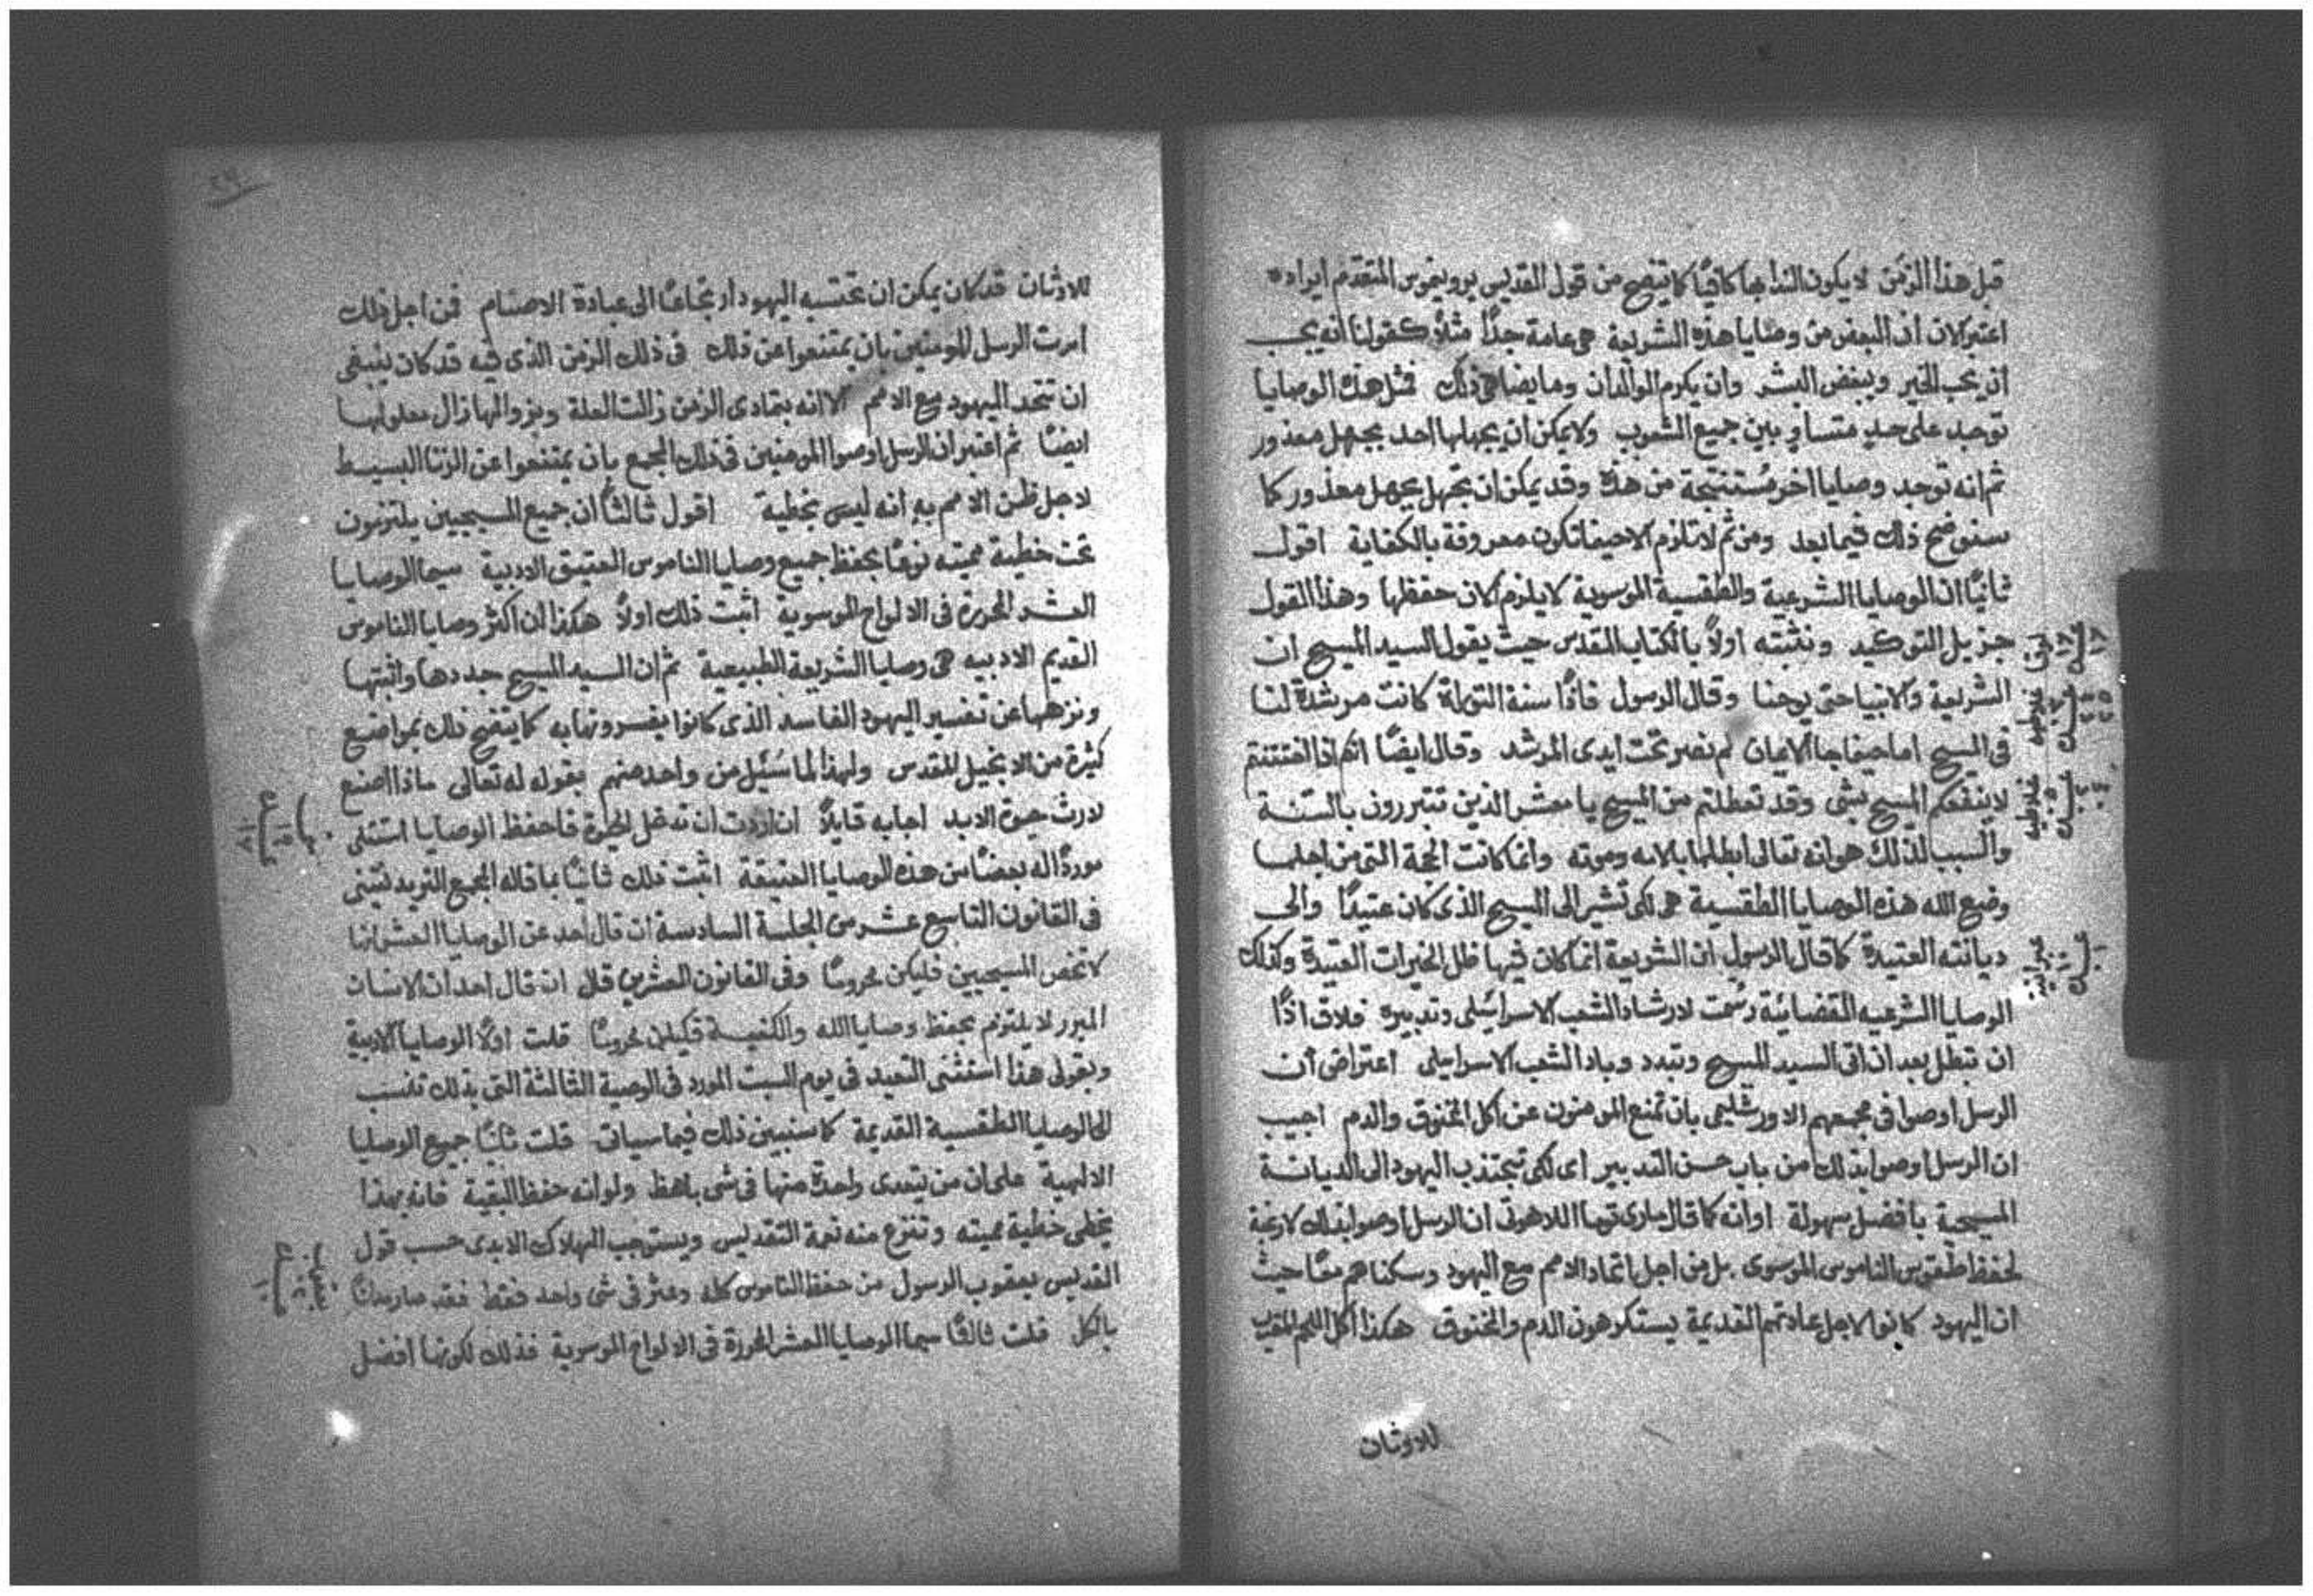 قبل هذا الزمن لا يكون النذا بها كافيًا كما يتضح من قول القديس يرونيموس المتقدم ايراده
اعتبر الان ان البعض من وصايا هذه الشريعة هى عامة جدًا مثلاً كقولنا انه يجب
ان يحب الخير ويبغض الشر وان يكرم الوالدان وما يضاهى ذلك فمثل هذه الوصايا
توجد على حدٍ متساوٍ بين جميع الشعوب ولا يمكن ان يجهلها احد بجهل معذور
ثم انه توجد وصايا اخر مُستنتجة من هذه وقد يمكن ان تجهل بجهل معذور كما
سنوضح ذلك فيما بعد ومن ثم لا تلزم الا حينما تكون معروفة بالكفاية اقول
ثانيًا ان الوصايا الشرعية والطقسية الموسوية لا يلزم الان حفظها وهذا القول
جزيل التوكيد ونثبته اولاً بالكتاب المقدس حيث يقول السيد المسيح ان
الشريعة والانبيا حتى يوحنا وقال الرسول فاذًا سنة التوراة كانت مرشدة لنا
فى المسيح اما حينما جا الايمان لم نصر تحت ايدى المرشد وقال ايضًا انكم اذا اختتنتم
لا ينفعكم المسيح بشى وقد تعطلتم من المسيح يا معشر الذين تتبررون بالسّنة
والسبب لذلك هو انه تعالى ابطلها بالامه وموته وانما كانت الحجة التى من اجلها
وضع الله هذه الوصايا الطقسية هى لكى تشير الى المسيح الذى كان عتيدًا والى
ديانته العتيدة كما قال الرسول ان الشريعة انما كان فيها ظل الخيرات العتيدة وكذلك
الوصايا الشرعيه القضائية رسُمت لارشاد الشعب الاسرائيلى وتدبيره فلاق اذًا
ان تبطل بعد ان اتى السيد المسيح وتبدد وباد الشعب الاسرايلى اعتراض ان
الرسل اوصوا فى مجمعهم الاورشليمى بان تمنع المومنون عن اكل المخنوق والدم اجيب
ان الرسل اوصوا بذلك من باب حسن التدبير اى لكى تجتذب اليهود الى الديانة
المسيحية بافضل سهولة او انه كما قال مارى توما اللاهوتى ان الرسل اوصوا بذلك لا رغبة
لحفظ طقوس الناموس الموسوى بل من اجل اتحاد الامم مع اليهود وسكناهم معًا حيث
ان اليهود كانوا لاجل عادتهم القديمة يستكرهون الدم والمخنوق هكذا اكل اللحم المقرب
للاوثان
لوقا
غلاطيه
غلاطيه
عبرانيه
للاوثان قد كان يمكن ان تحتسبه اليهود ارتجاعًا الى عبادة الاصنام فمن اجل ذلك
امرت الرسل المومنين بان يمتنعوا عن ذلك فى ذلك الزمن الذى فيه قد كان ينبغى
ان تتحد اليهود مع الامم الا انه بتمادى الزمن زالت العلة وبزوالها زال معلولها
ايضًا ثم اعتبر ان الرسل اوصوا المومنين فى ذلك المجمع بان يمتنعوا عن الزنا البسيط
لاجل ظن الامم به انه ليس بخطية اقول ثالثًا ان جميع المسيحيين يلتزمون
تحت خطية مميته نوعًا بحفظ جميع وصايا الناموس العتيق الادبية سيما الوصايا
العشر المحررة فى الالواح الموسوية اثبت ذلك اولاً هكذا ان اكثر وصايا الناموس
القديم الادبيه هى وصايا الشريعة الطبيعية ثم ان السيد المسيح جددها واثبتها
ونزهها عن تفسير اليهود الفاسد الذى كانوا يفسرونها به كما يتضح ذلك بمواضيع
كثيرة من الانجيل المقدس ولهذا لما سُئِل من واحد منهم بقوله له تعالى ماذا اصنع
لارث حيوة الابد اجابه قايلاً ان اردت ان تدخل الحيوة فاحفظ الوصايا استتلى
موردًا له بعضًا من هذه الوصايا العتيقة اثبت ذلك ثانيًا بما قاله المجمع التريدنتينى
فى القانون التاسع عشر من الجلسة السادسة ان قال احد عن الوصايا العشر انها
لا تخص المسيحيين فليكن محرومًا وفى القانون العشرين قال ان قال احد ان الانسان
المبرر لا يلتزم بحفظ وصايا الله والكنيسة فليكن محرومًا قلت اولاً الوصايا الادبية
وبقولى هذا استثنى التعيد فى يوم السبت المورد فى الوصية الثالثة التى بذلك تنسب
الى الوصايا الطقسية القديمة كما سنبين ذلك فيما سياتى قلت ثانيًا جميع الوصايا
الالهية على ان من يتعدى واحدة منها فى شى باهظ ولو انه حفظ البقية فانه بهذا
يخطى خطية مميته وتنزع منه نعمة التقديس ويستوجب الهلاك الابدى حسب قول
القديس يعقوب الرسول من حفظ الناموس كله وعثر فى شى واحد فقط فقد صار مدانًا
بالكل قلت ثالثًا سيما الوصايا العشر المحررة فى الالواح الموسوية فذلك لكونها افضل